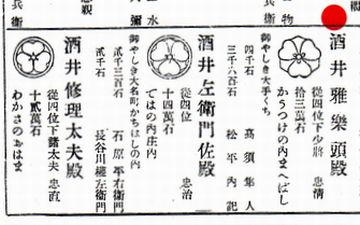 酒井雅樂頭殿
従四位下少將 忠淸
拾三萬石
かうつけの内まへばし
御やしき大手くち
四千石 高須隼人
三千六百石 松平内記
酒井左衛門佐殿
従四位 忠治
十四萬石
てはの内庄内
御やしき大名町かちはしの内
貳千三百石 石原平右衛門
貳千石 長谷川權左衛門
酒井修理太夫殿
従四位下諸太夫 忠直
十貳萬石
わかさのおはま